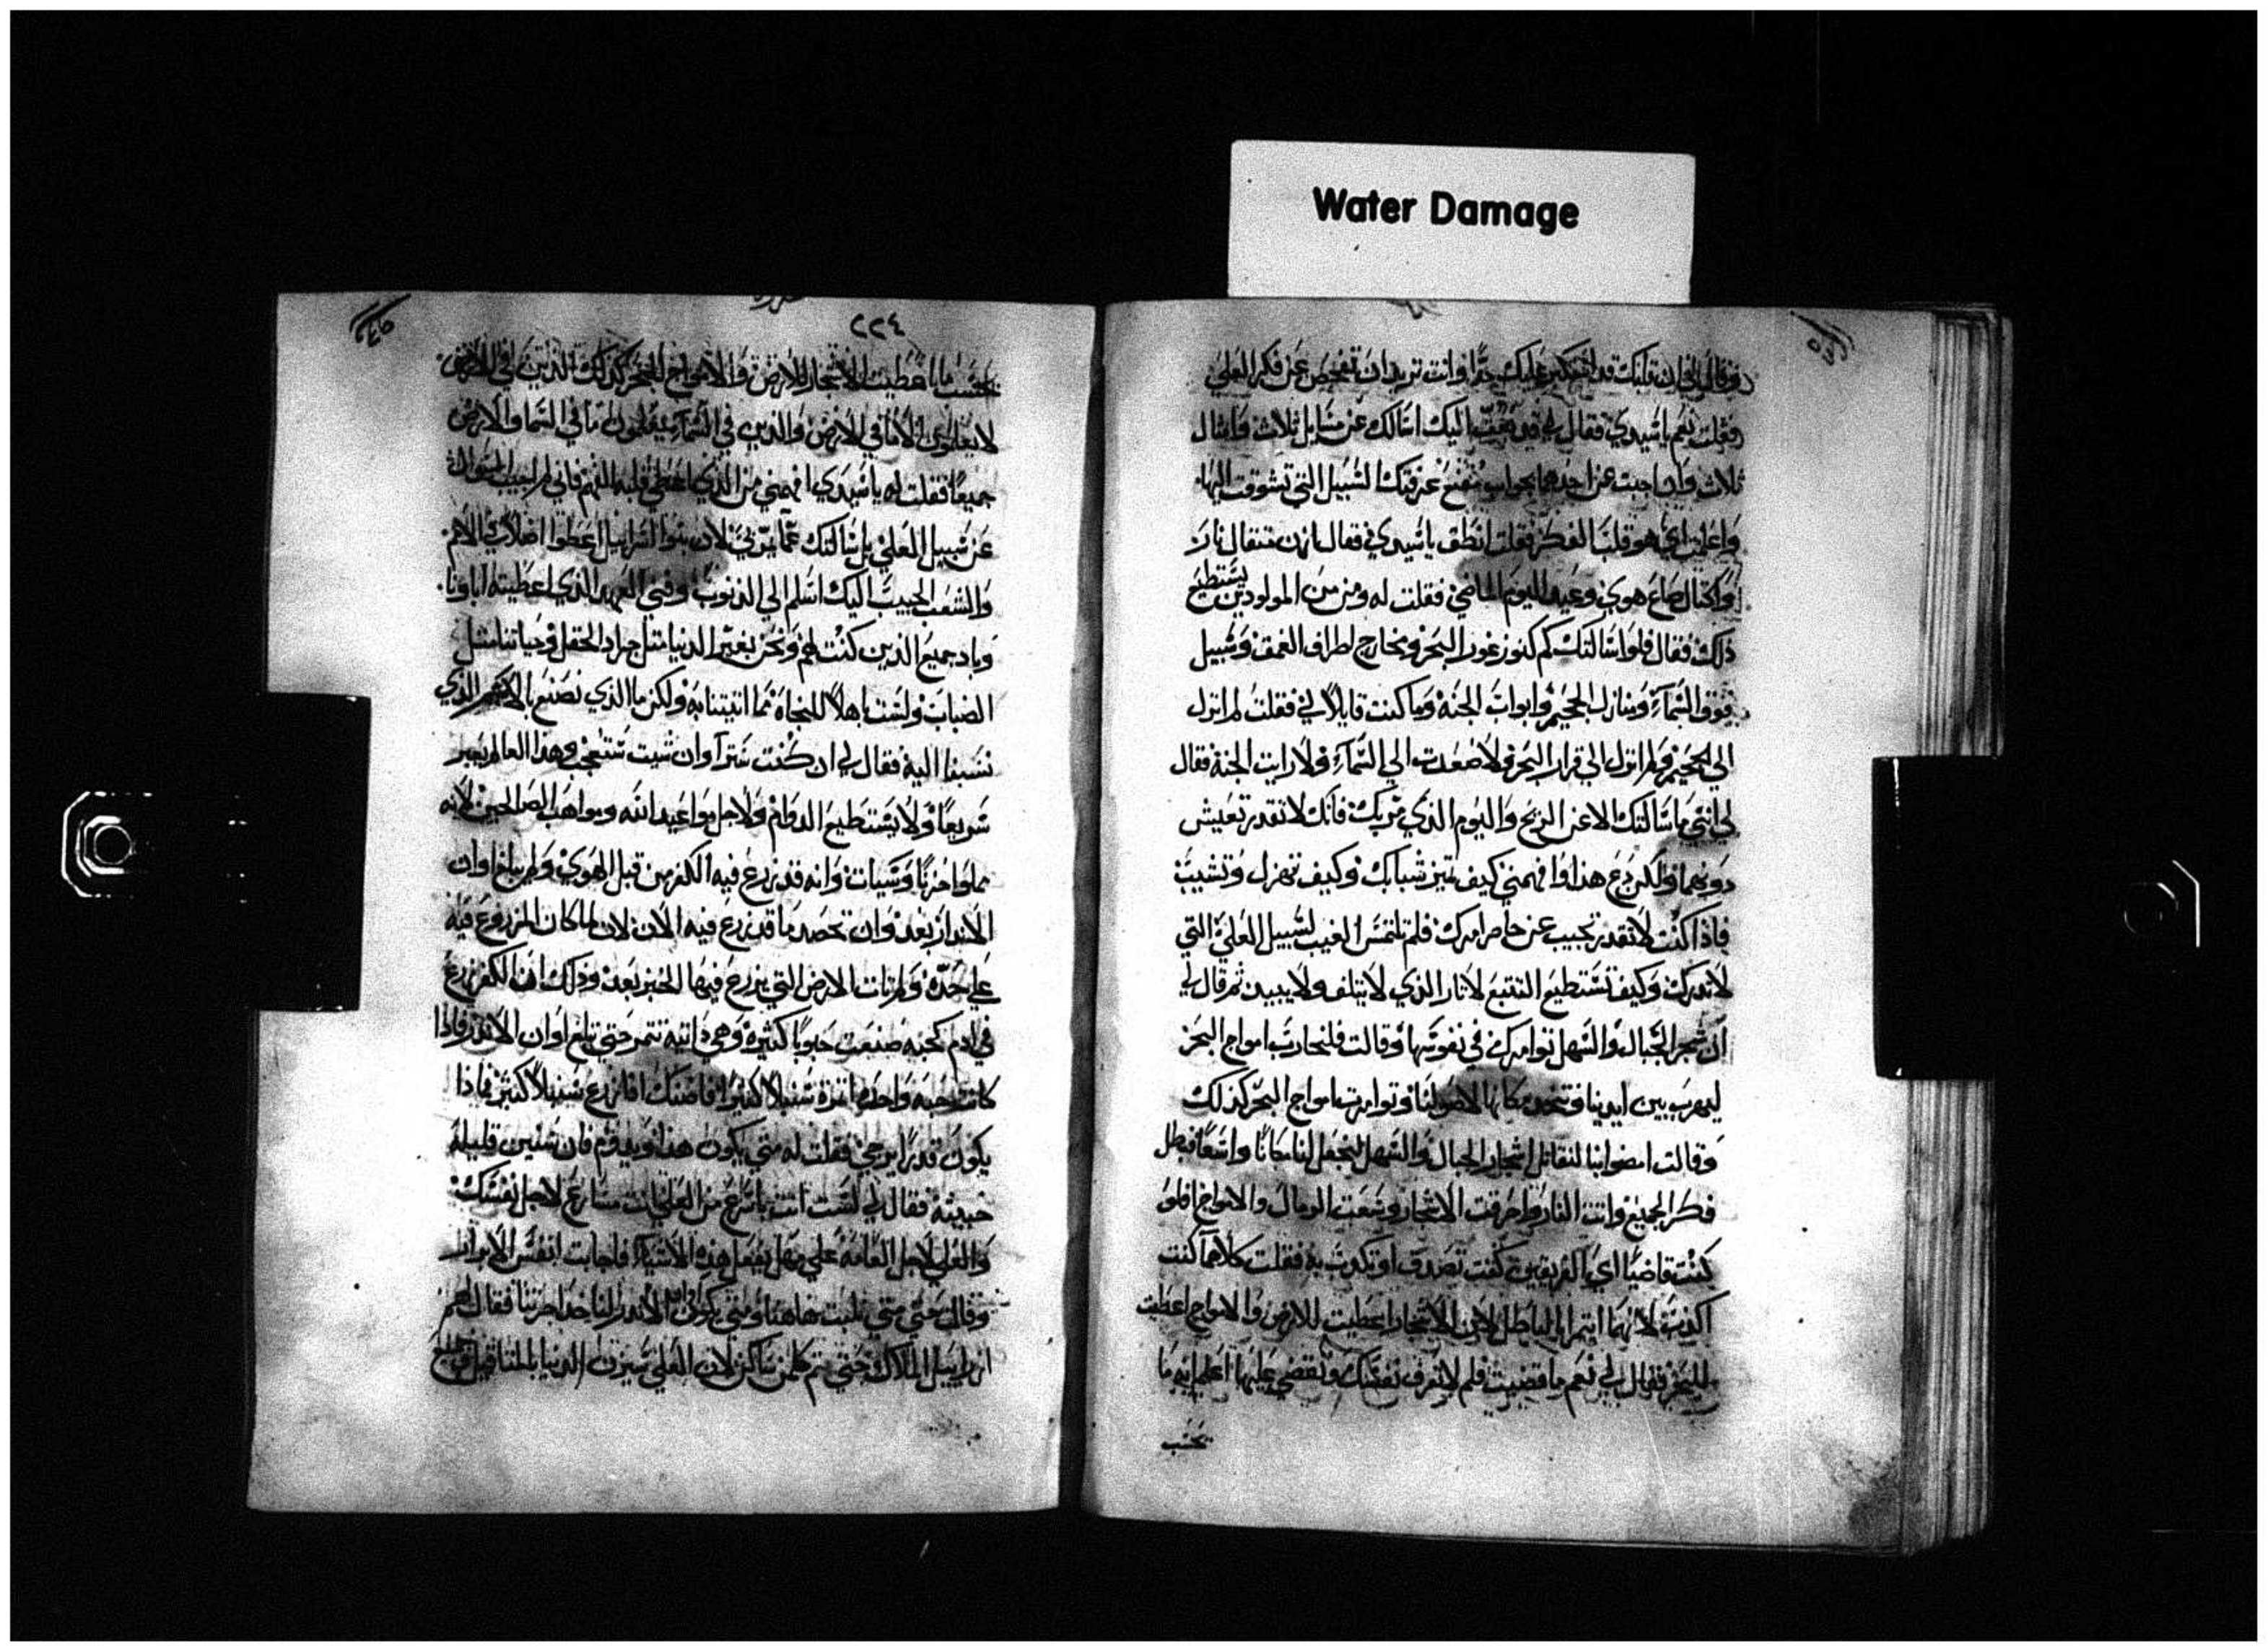 Water Damage
وقال لي ان قلبك قد استكبر عليك جدًا وانت تريد ان تفحص عن فكر العلي
فقلت نعم يا سيدي فقال لي قد بعثت اليك اسالك عن مسايل ثلاث وامثال
ثلاث وان اجبت عن احدهما بجواب عرفتك السبيل التي تشوقت اليها
واعلمت اي هو قلب الفكر فقلت انطق يا سيدي فقال لي زن مثقال نار
واكتال صاع هوي وعيد اليوم الماضي فقلت له ومن من المولودين يستطيع
ذلك فقال فلو اسالتك كم كنوز غور البحر ومخارج لطراف العمق وسبيل
فوق السماء ومنازل الجحيم وابواب الجنة وما كنت قايلاً لي فقلت لم انزل
الي الجحيم ولم انزل الي قرار البحر ولا صعدت الي السماء ولا رايت الجنة فقال
لي انني ما سالتك الا عن الريح واليوم الذي مر بك فانك لا تقدر تعيش
دونهما ولكن دع هذا وافهمني كيف تميز شبابك وكيف تهزل وتشيب
فاذا كنت لا تقدر تجيب عن حاضر امرك فلم تلتمس الغيب لسبيل العلي التي
لا تدرك وكيف تستطيع التتبع لاثار الذي لا يتلف ولا يبيد ثم قال لي
ان شجر الجبال والسهل توامرت في نفوسها وقالت فلنحارب امواج البحر
ليهرب من بين ايدينا ونتخذ مكانها لاصولنا وتوامرت امواج البحر كذلك
وقالت امضوا بنا لنقاتل اشجار الجبال والسهل لنجعل لنا مكانًا واسعًا فبطل
فكر الجميع واتت النار واحرقت الاشجار وشعبت الرمال والامواج افلو
كنت قاضيًا اي الفريقين كنت تصدق او تكذب به فقلت كلاهما كنت
اكذب لانهما ايتمرا بالباطل لان الاشجار اعطيت للارض والامواج اعطيت
للبحر فقال لي نعم ما قضيت فلم لا تعرف نفسك وتقضي عليها اعلم انه ما
تحسب
٢٢٤
بحسب ما اعطيت الاشجار للارض والامواج للبحر كذلك الذين في الارض
لا يعلمون الا ما في الارض والذين في السماء يعلمون ما في السما والارض
جميعًا فقلت له يا سيدي افهمني من الذي اعطي قلبه الفهم فاني لم اجيب لسوال
عن سبيل العلي بل سالتك عما مر بي لان بنوا اسراييل اعطوا في الامم
والشعب الحبيب اليك اسلم الي الذنوب وفني العهد الذي اعطيته اباونا
وباد جميع الذين كنت لهم ونحن بغير الدنيا مثل جراد الحقل وحياتنا مثل
الضباب ولست اهلاً للنجاة مما اتيتنا به ولكن ما الذي نصنع بالاسم الذي
نسبنا اليه فقال لي ان كنت سترا وان شيت ستعجب وهذا العالم يعبر
سريعًا ولا يستطيع الدوام ولاجل مواعيد الله ومواهب الصالحين لانه
مملوا حزنًا وسيات وانه قد زرع فيه الكفر من قبل الهوي ولم يباغ اوان
الاندر بعد وان تحصد ما قد زرع فيه الان لان لما كان المزروع فيه
علي حده ولم تات الارض التي يزرع فيها الخير بعد وذلك ان الكفر زرع
في ادم كحبه صنعت حبوبًا كثيرة وهي دايبة تثمر حتي يبلغ اوان الاندر فاذا
كانت حبه واحده اثمرة سنبلاً كثيرًا فاضنك اذا زرع سنبلاً كثير فاذا
يكون قدرًا يرجي فقلت له متي يكون هذا ويدوم فان سنين قليله
خبيثة فقال لي لست انت باسرع من العلي انت مسارع لاجل نفسك
والعلي لاجل العامة علي مهل يفعل هذه الاشياء فاجابت انفس الابرار
وقالت حتي متي نلبث هاهنا ومتي يكون الاندر لناخذ اجرتنا فقال لهم
ارياييل الملاك حتي تم كل من ساكن لان العلي سيزن الدنيا بالمثاقيل